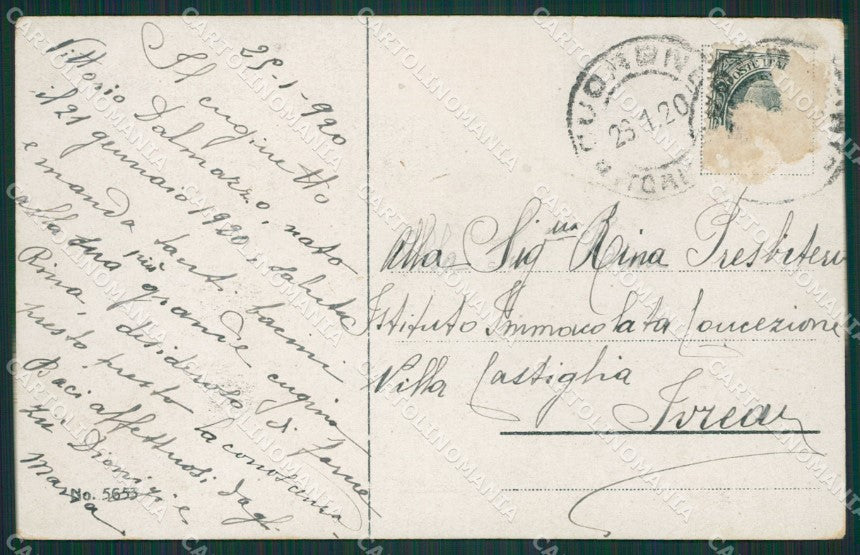 25-1-920
Il cuginetto
Vittorio Dalmazzo, nato
il 21 gennaio 1920, saluta
e manda tanti bacini
alla sua più grande cugina
Rina, desideroso di farne
presto presto la conoscenza
Baci affettuosi dagli
zii Dionigi e
Maria
No. 5653
CUORGNÈ
26.1.20
TORINO
POSTE ITAL
Alla Sig.na Rina Presbitero
Istituto Immacolata Concezione
Villa Castiglia
Ivrea
CARTOLINOMANIA